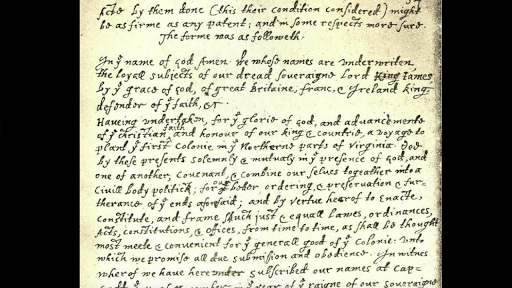 Acts by them done (this their condition considered) might
be as firme as any patent; and in some respects more sure.
The forme was as followeth.
In yͤ name of god Amen. We whose names are underwriten,
the loyall subjects of our dread soveraigne Lord King James
by yͤ grace of god, of great Britaine, franc, & Ireland king,
defender of yͤ faith, &c.
Haveing undertaken, for yͤ glorie of god, and advancemente
of yͤ christian faith and honour of our king & countrie, a voyage to
plant yͤ first colonie in yͤ Northerne parts of Virginia. Doe
by these presents solemnly & mutualy in yͤ presence of god, and
one of another, covenant, & combine our selves togeather into a
Civill body politick; for our better ordering, & preservation & fur-
therance of yͤ ends aforesaid; and by vertue hearof to enacte,
constitute, and frame shuch just & equall lawes, ordinances,
Acts, constitutions, & offices, from time to time, as shall be thought
most meete & convenient for yͤ generall good of yͤ Colonie: unto
which we promise all due submission and obedience. In witnes
wherof we have hereunder subscribed our names at Cap-
yͤ year of yͤ raigne of our soveraigne